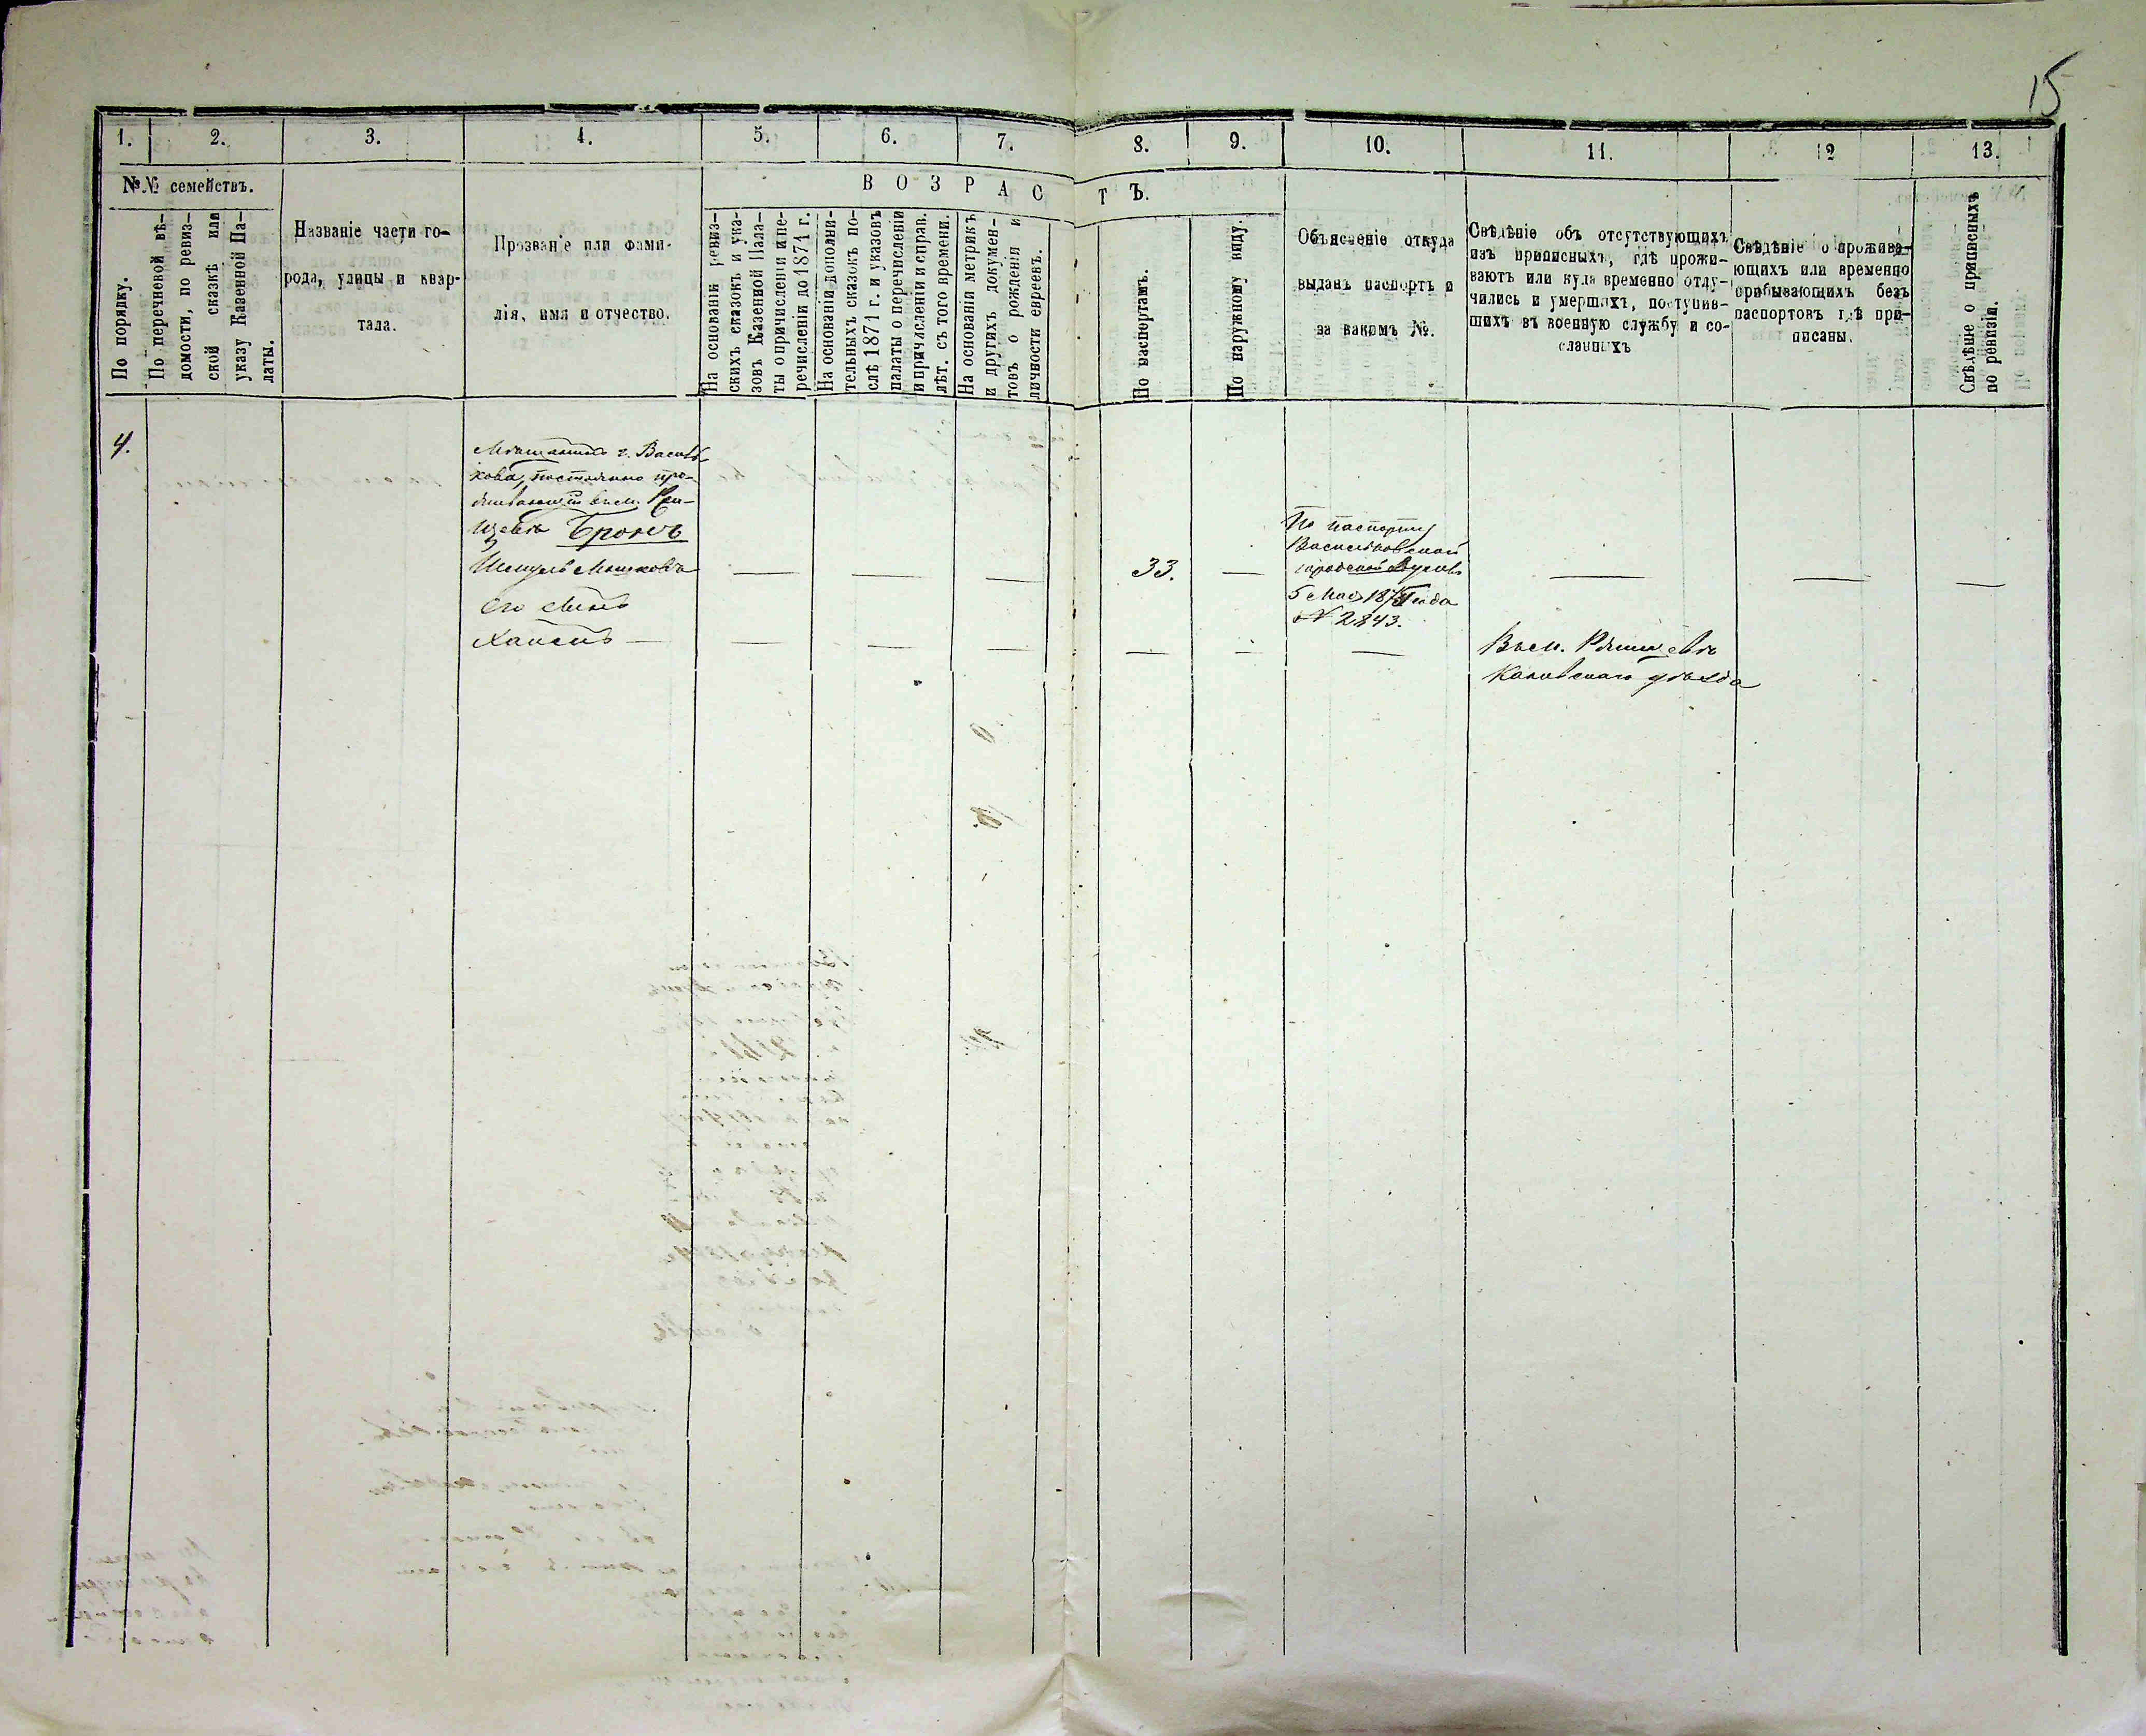 15
1. 2. 3. 4. 5. 6. 7. 8. 9. 10. 11. 12 13.
№№ семействъ.
По порядку.
По перечневой вѣ-
домости, по ревиз-
ской сказкѣ или
указу Казенной Па-
латы.
Названіе части го-
рода, улицы и квар-
тала.
Прозваніе или фами-
лія, имя и отчество.
ВОЗРАСТЪ.
На основаніи ревиз-
скихъ сказокъ и ука-
зовъ Казенной Пала-
ты о причисленіи и пе-
речисленіи до 1871 г.
На основаніи дополни-
тельныхъ сказокъ по-
слѣ 1871 г. и указовъ
палаты о перечисленіи
и причисленіи и справ.
лѣт. съ того времени.
На основаніи метрикъ
и другихъ докумен-
товъ о рожденіи и
личности евреевъ.
По паспортамъ.
По наружному виду.
Объясненіе откуда
выданъ паспортъ и
за какимъ №.
Свѣдѣніе объ отсутствующихъ
изъ приписныхъ, гдѣ прожи-
ваютъ или куда временно отлу-
чились и умершихъ, поступив-
шихъ въ военную службу и со-
сланныхъ
Свѣдѣніе о прожива-
ющихъ или временно
пребывающихъ безъ
паспортовъ гдѣ при-
писаны.
Свѣдѣніе о приписныхъ
по ревизіи.
4.
Мѣщанинъ г. Василь
кова, постоянно про-
живающій въ м. Ржи-
щевѣ Бронъ
Шмуль Мошковъ
Его сынъ
Хаимъ —
33.
По паспорту
Васильковской
городской Думы
5 Мая 187 года
№ 2843.
Въ м. Ржищевѣ
Каневскаго уѣзда